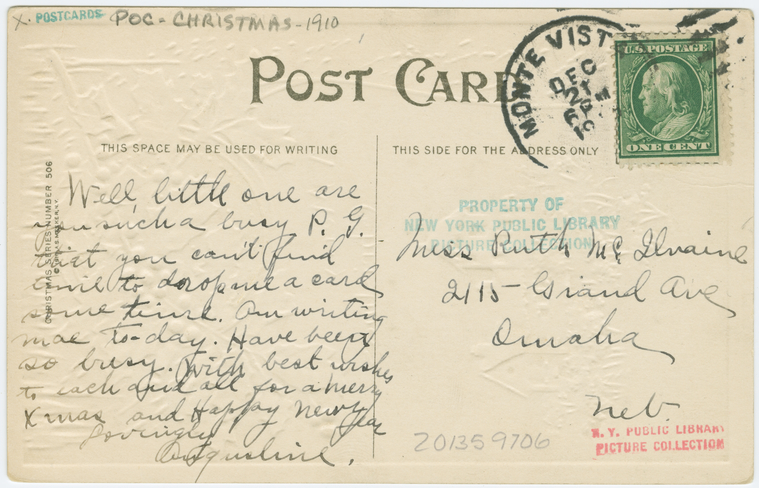 X. POSTCARDS POC - CHRISTMAS - 1910
POST CARD
MONTE VIST
DEC
21
6 PM
19
U.S. POSTAGE
ONE CENT
THIS SPACE MAY BE USED FOR WRITING
THIS SIDE FOR THE ADDRESS ONLY
CHRISTMAS SERIES NUMBER 506
PROPERTY OF
NEW YORK PUBLIC LIBRARY
PICTURE COLLECTION
Well, little one are
you such a busy P. G.
that you can't find
time to drop me a card
some time. Am writing
mae to-day. Have been
so busy. With best wishes
to each and all for a merry
Xmas and Happy New Year
Lovingly
Miss Ruth Mc Ilvaine
2115 Grand Ave
Omaha
Neb.
201359706
N. Y. PUBLIC LIBRARY
PICTURE COLLECTION